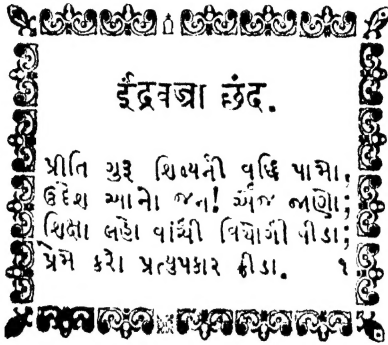 ઈંદ્રવજ્રા છંદ.
પ્રીતિ ગુરૂ શિષ્યની વૃદ્ધિ પામો,
ઉદેશ આનો જન! એજ જાણો;
શિક્ષા લહો વાંચી વિયોગી પીડા;
પ્રેમે કરો પ્રત્યુપકાર ક્રીડા. ૧